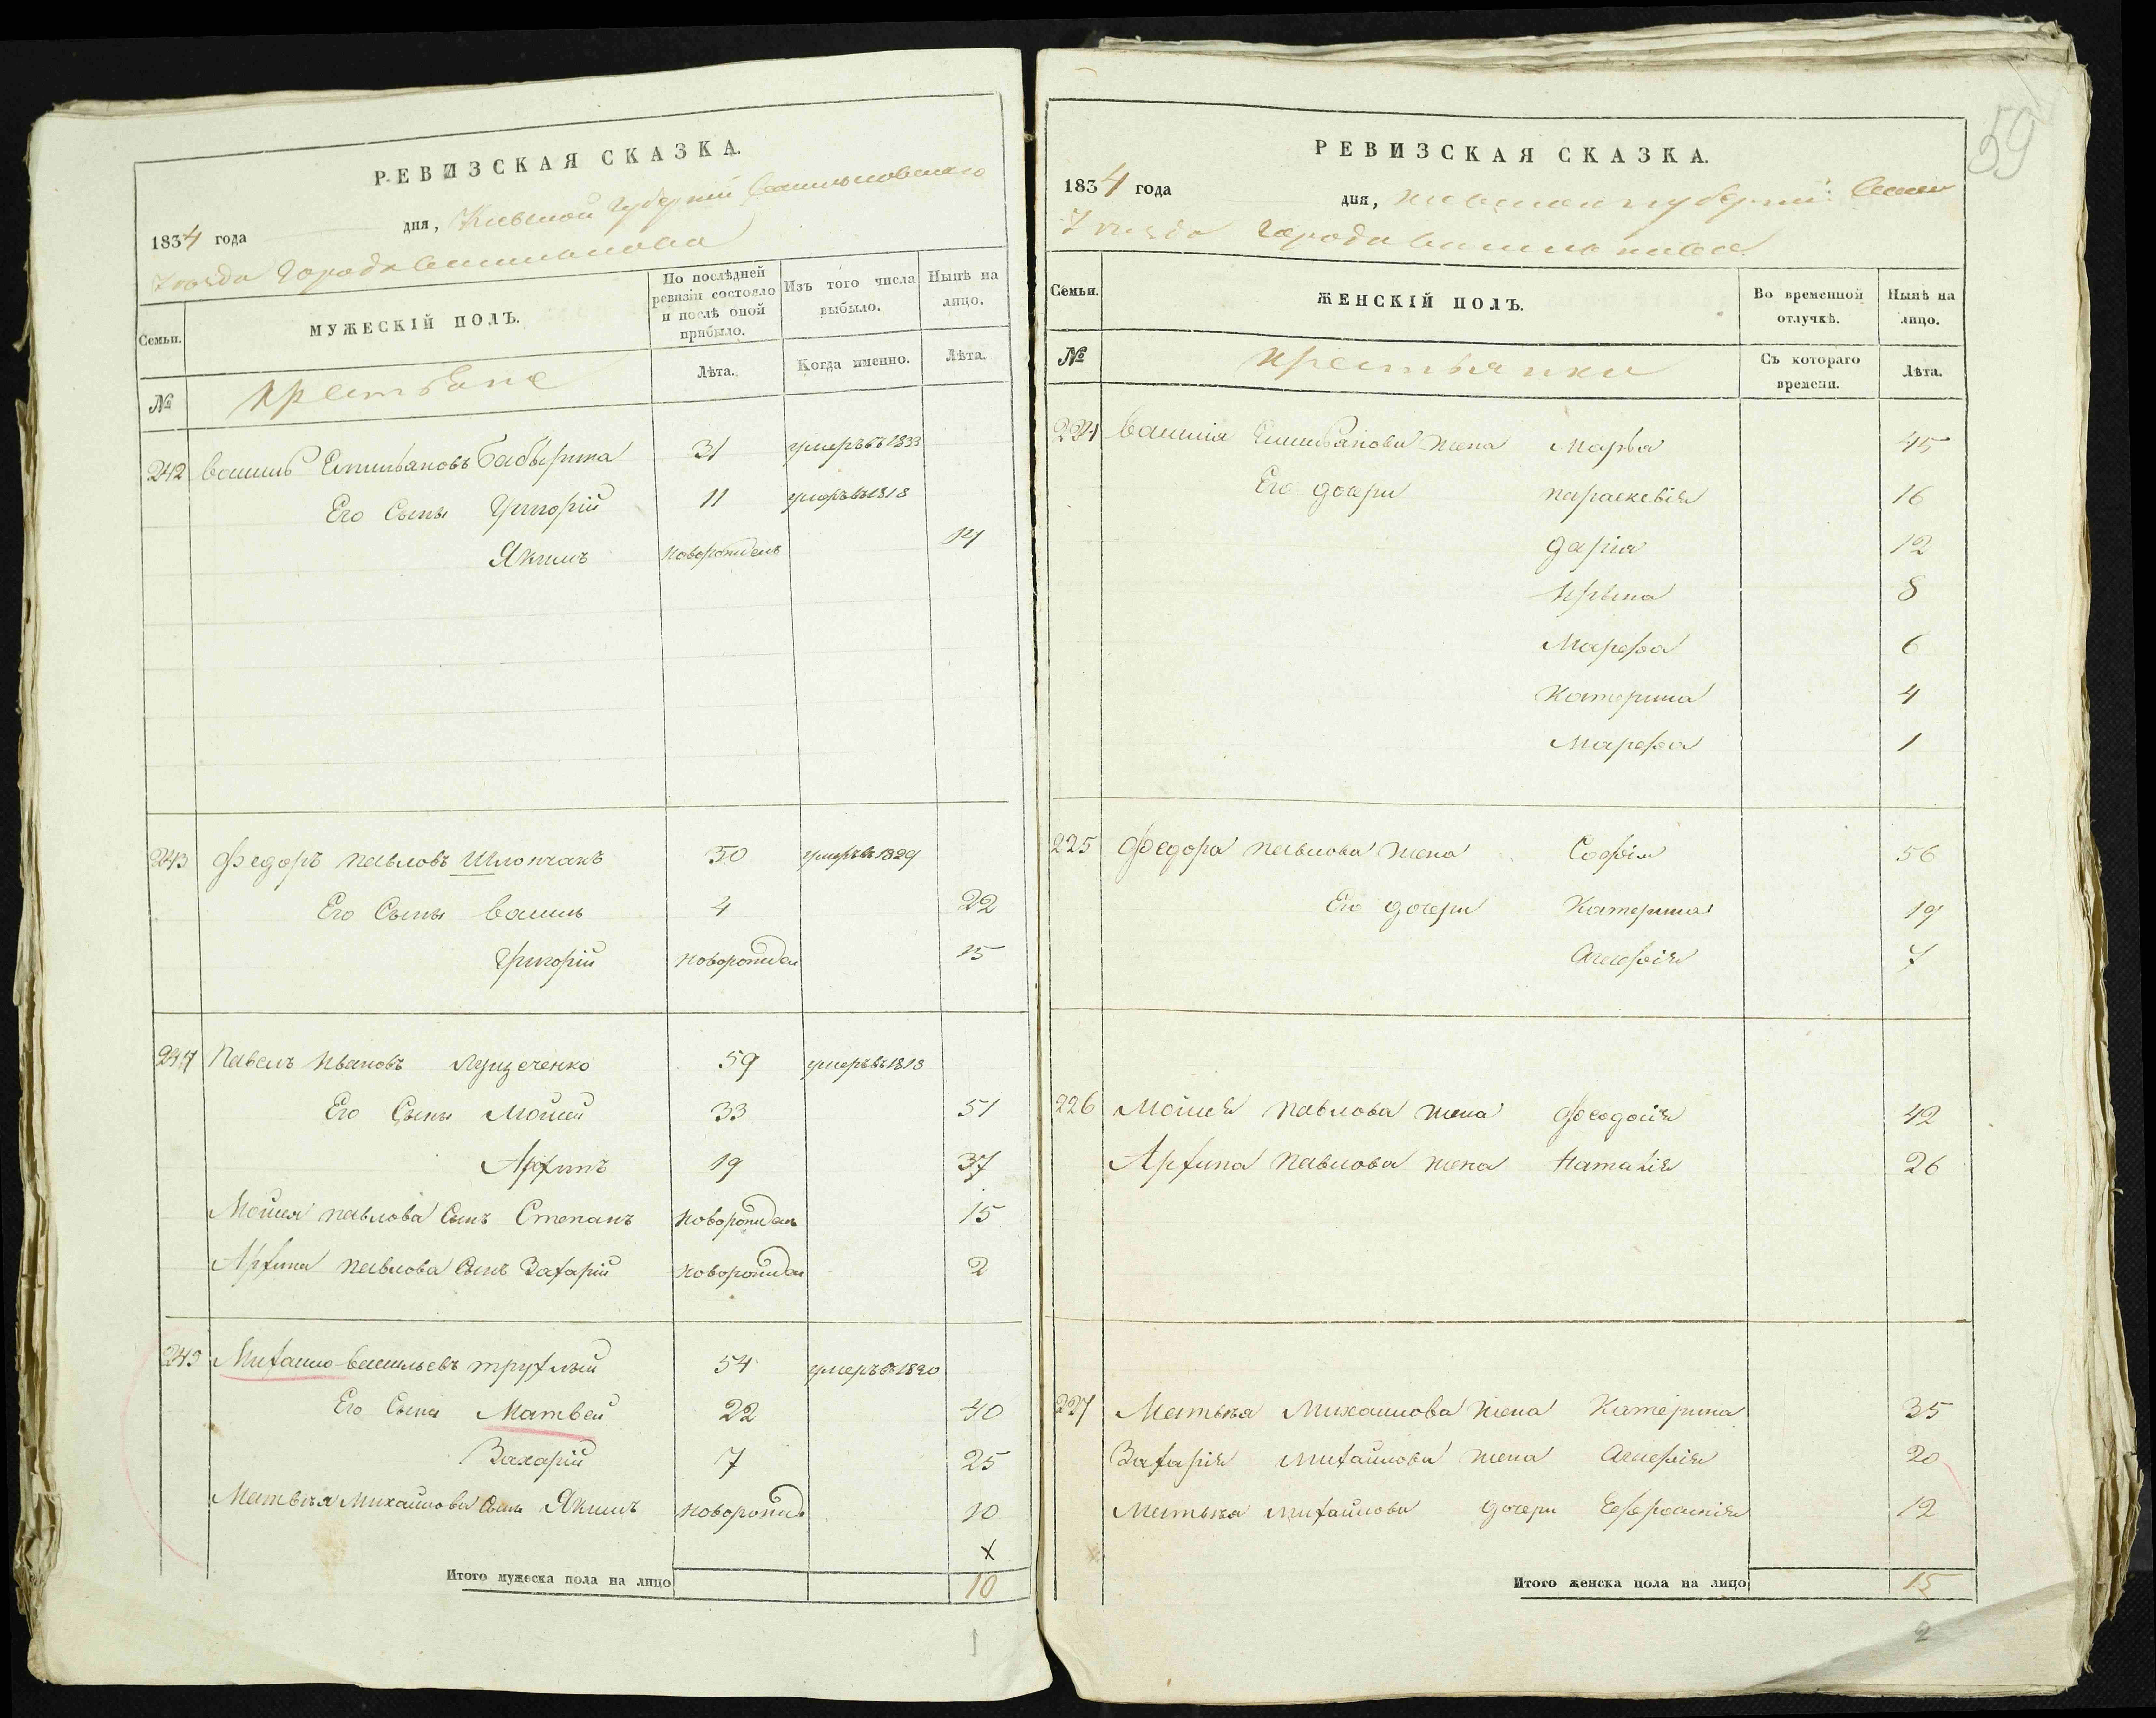 РЕВИЗСКАЯ СКАЗКА.
1834 года дня, Киевской Губерніи Васильковского
Уезда Города Василькова
Семьи. МУЖЕСКІЙ ПОЛЪ. По послѣдней ревизіи состояло и послѣ оной прибыло. Изъ того числа выбыло. Нынѣ на лицо.
№ крестьяне Лѣта. Когда именно. Лѣта.
242 Василь Емильяновъ Бабырика 31 умеръ въ 1833
Его Сыны Григорій 11 умеръ въ 1818
Якимъ новорожденъ 14
243 Федоръ Павловъ Шлопчакъ 50 умеръ въ 1829
Его Сыны Василь 4 22
Григорій новорожден 15
244 Павелъ Ивановъ Луцеченко 59 умеръ въ 1818
Его Сыны Мойсей 33 51
Архипъ 19 37
Мойсея Павлова Сынъ Степанъ новорожденъ 15
Архипа Павлова Сынъ Захарій новорожден 2
245 Михайло Васильевъ трухлый 54 умеръ въ 1820
Его Сыны Матвей 22 40
Захарій 7 25
Матвѣя Михайлова Сынъ Якимъ новорожд 10
х
Итого мужеска пола на лицо 10
1
59
РЕВИЗСКАЯ СКАЗКА.
1834 года дня, Киевской губерніи Васил
Уезда Города Василькова
Семьи. ЖЕНСКІЙ ПОЛЪ. Во временной отлучкѣ. Нынѣ на лицо.
№ крестьянки Съ котораго времени. Лѣта.
224 Василія Емильянова жена Марья 45
Его дочери Параскевія 16
Дарія 12
Ирына 8
Марефа 6
Катерина 4
Марефа 1
225 Федора Павлова жена Софія 56
Его дочери Катерина 19
Агафія 7
226 Мойсея Павлова жена Феодосія 42
Архипа Павлова жена Наталія 26
227 Матвѣя Михайлова жена Катерина 35
Захарія Михайлова жена Агафія 20
Матвѣя Михайлова дочери Ефросинія 12
Итого женска пола на лицо 15
2